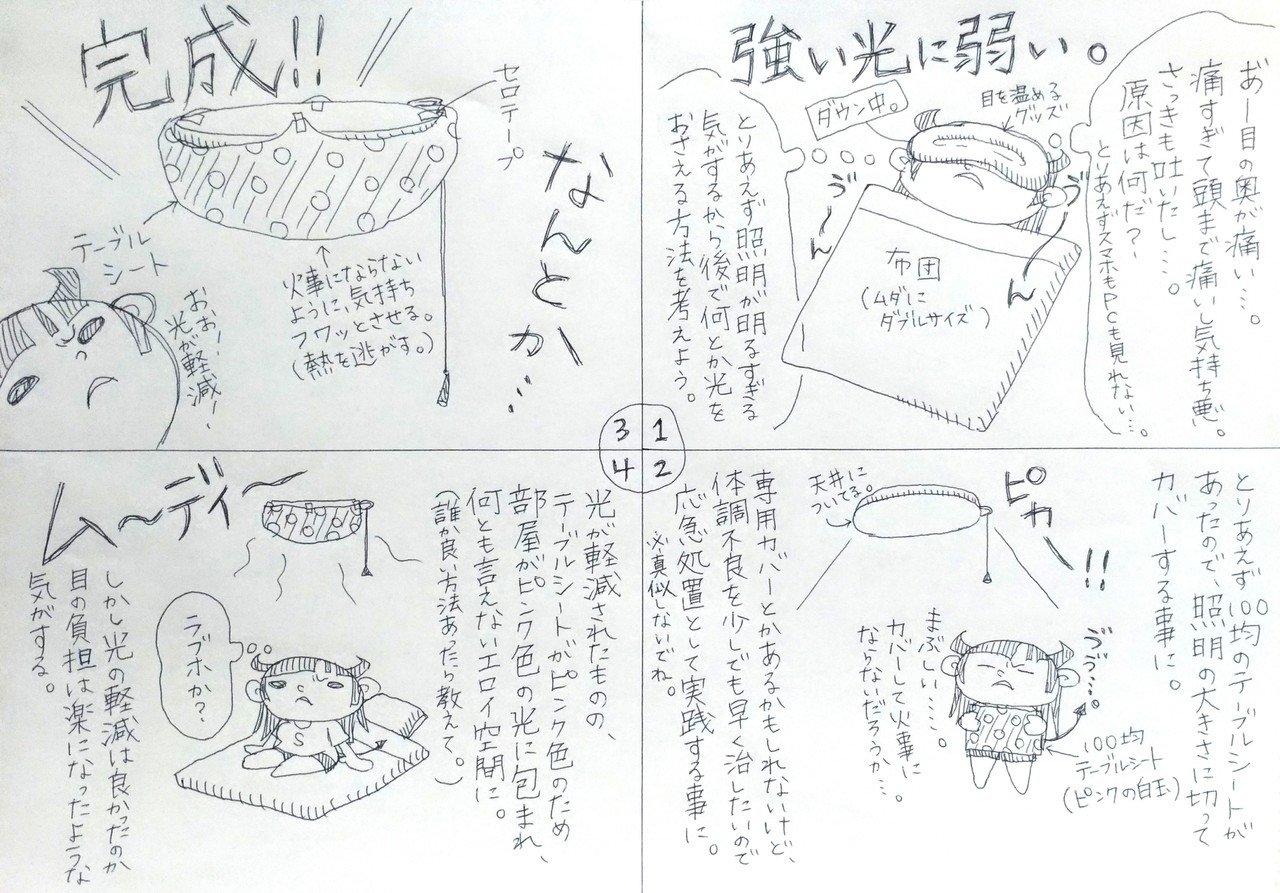 強い光に弱い。
おー目の奥が痛い…。
痛すぎて頭まで痛いし気持ち悪。
さっきも吐いたし…。
原因は何だ？
とりあえずスマホもPCも見れない…。
目を温める
グッズ
ダウン中。
ヴ〜ん
ヴ〜ん
布団
(ムダに
ダブルサイズ)
とりあえず照明が明るすぎる
気がするから後で何とか光を
おさえる方法を考えよう。
1
2
3
4
とりあえず100均のテーブルシートが
あったので、照明の大きさに切って
カバーする事に。
ピカー!!
天井に
ついてる。
ヴヴ…
まぶしい……。
カバーして火事に
ならないだろうか…。
100均
テーブルシート
(ピンクの白玉)
専用カバーとかあるかもしれないけど、
体調不良を少しでも早く治したいので
応急処置として実践する事に。
※真似しないでね。
なんとか…
完成!!
セロテープ
テーブル
シート
火事にならない
ように、気持ち
フワッとさせる。
(熱を逃がす。)
おぉー
光が軽減ー
光が軽減されたものの、
テーブルシートがピンク色のため
部屋がピンク色の光に包まれ、
何とも言えないエロイ空間に。
(誰か良い方法あったら教えて。)
ム〜ディ〜
ラブホか？
S
しかし光の軽減は良かったのか
目の負担は楽になったような
気がする。